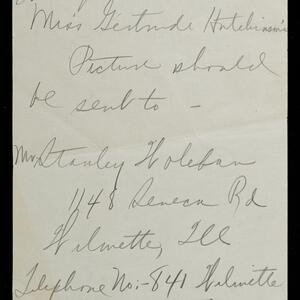 Miss Gertrude Hutchinson's
Picture should
be sent to -
Mr Stanley Holeban
1148 Seneca Rd
Wilmette, Ill
Telephone No:-841 Wilmette